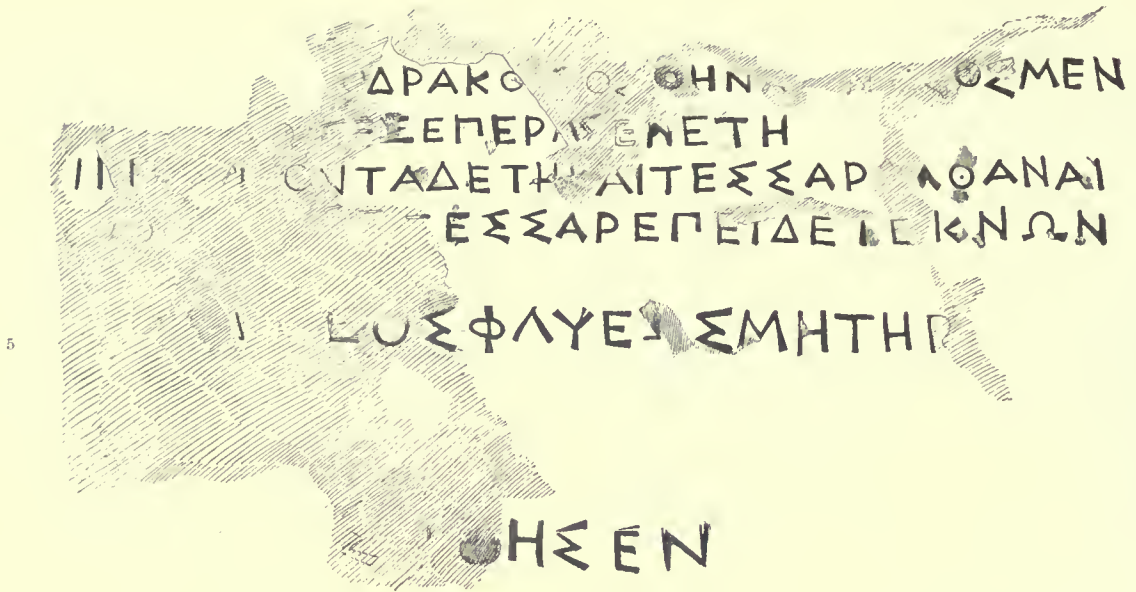 ΔΡΑΚΟ Ο ΘΗΝ ΟΣΜΕΝ
ΞΕΠΕΡΑ ΕΝΕΤΗ
ΟΝΤΑΔΕΤΗ ΑΙΤΕΣΣΑΡ ΑΘΑΝΑΙ
ΤΕΣΣΑΡΕΠΕΙΔΕΤΕΚΝΩΝ
5 ΕΟΣΦΛΥΕ ΣΜΗΤΗΡ
ΟΗΣΕΝ